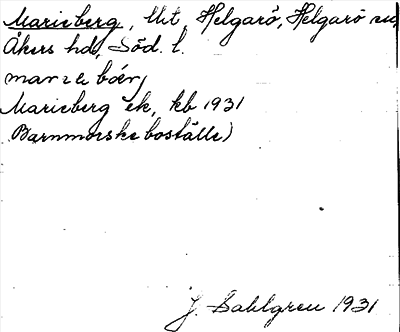 Marieberg, lht, Helgarö, Helgarö sn,
Åkers hd, Söd. l.
marie bärj
Marieberg ek, kb 1931
Barnmorskeboställe)
J. Sahlgren 1931